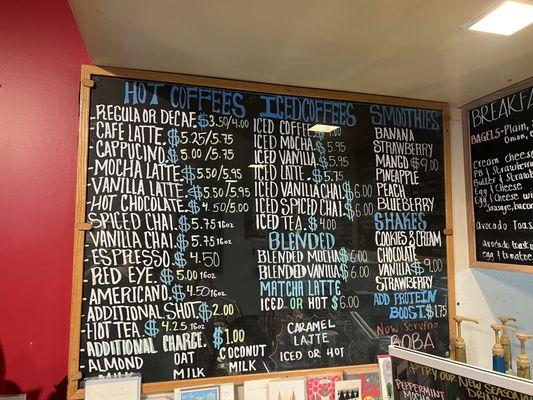 HOT COFFEES
- REGULA OR DECAF. $3.50/4.00
- CAFE LATTE. $5.25/5.75
- CAPPUCINO. $5.00/5.75
- MOCHA LATTE. $5.50/5.95
- VANILLA LATTE. $5.50/5.95
- HOT CHOCOLATE. $4.50/5.00
SPICED CHAI. $5.75 16oz
VANILLA CHAI. $5.75 16oz
- ESPRESSO $4.50
RED EYE. $5.00 16oz
AMERICANO. $4.50 16oz
ADDITIONAL SHOT. $2.00
- HOT TEA. $4.25 16oz
ADDITIONAL CHARGE. $1.00
ALMOND MILK
OAT MILK
COCONUT MILK
ICED COFFEES
ICED COFFEE
ICED MOCHA
ICED VANILLA $5.95
ICED LATTE. $5.75
ICED VANILLA CHAI $6.00
ICED SPICED CHAI $6.00
ICED TEA. $4.00
BLENDED
BLENDED MOCHA $6.00
BLENDED VANILLA $6.00
MATCHA LATTE
ICED OR HOT $6.00
CARAMEL
LATTE
ICED OR HOT
SMOOTHIES
BANANA
STRAWBERRY
MANGO $9.00
PINEAPPLE
PEACH
BLUEBERRY
SHAKES
COOKIES & CREAM
CHOCOLATE
VANILLA $9.00
STRAWBERRY
ADD PROTEIN
BOOST. $1.75
NOW SERVING
BOBA
BREAKFAS
BAGELS - Plain,
Onion,
Cream cheese
PB & Strawberr
Butter &
Egg & Cheese
Egg & Cheese with
Sausage, bacon
Avocado Toas
avocado toast
egg & tomato
TRY OUR NEW SEASONA
PEPPERMINT
DRINK